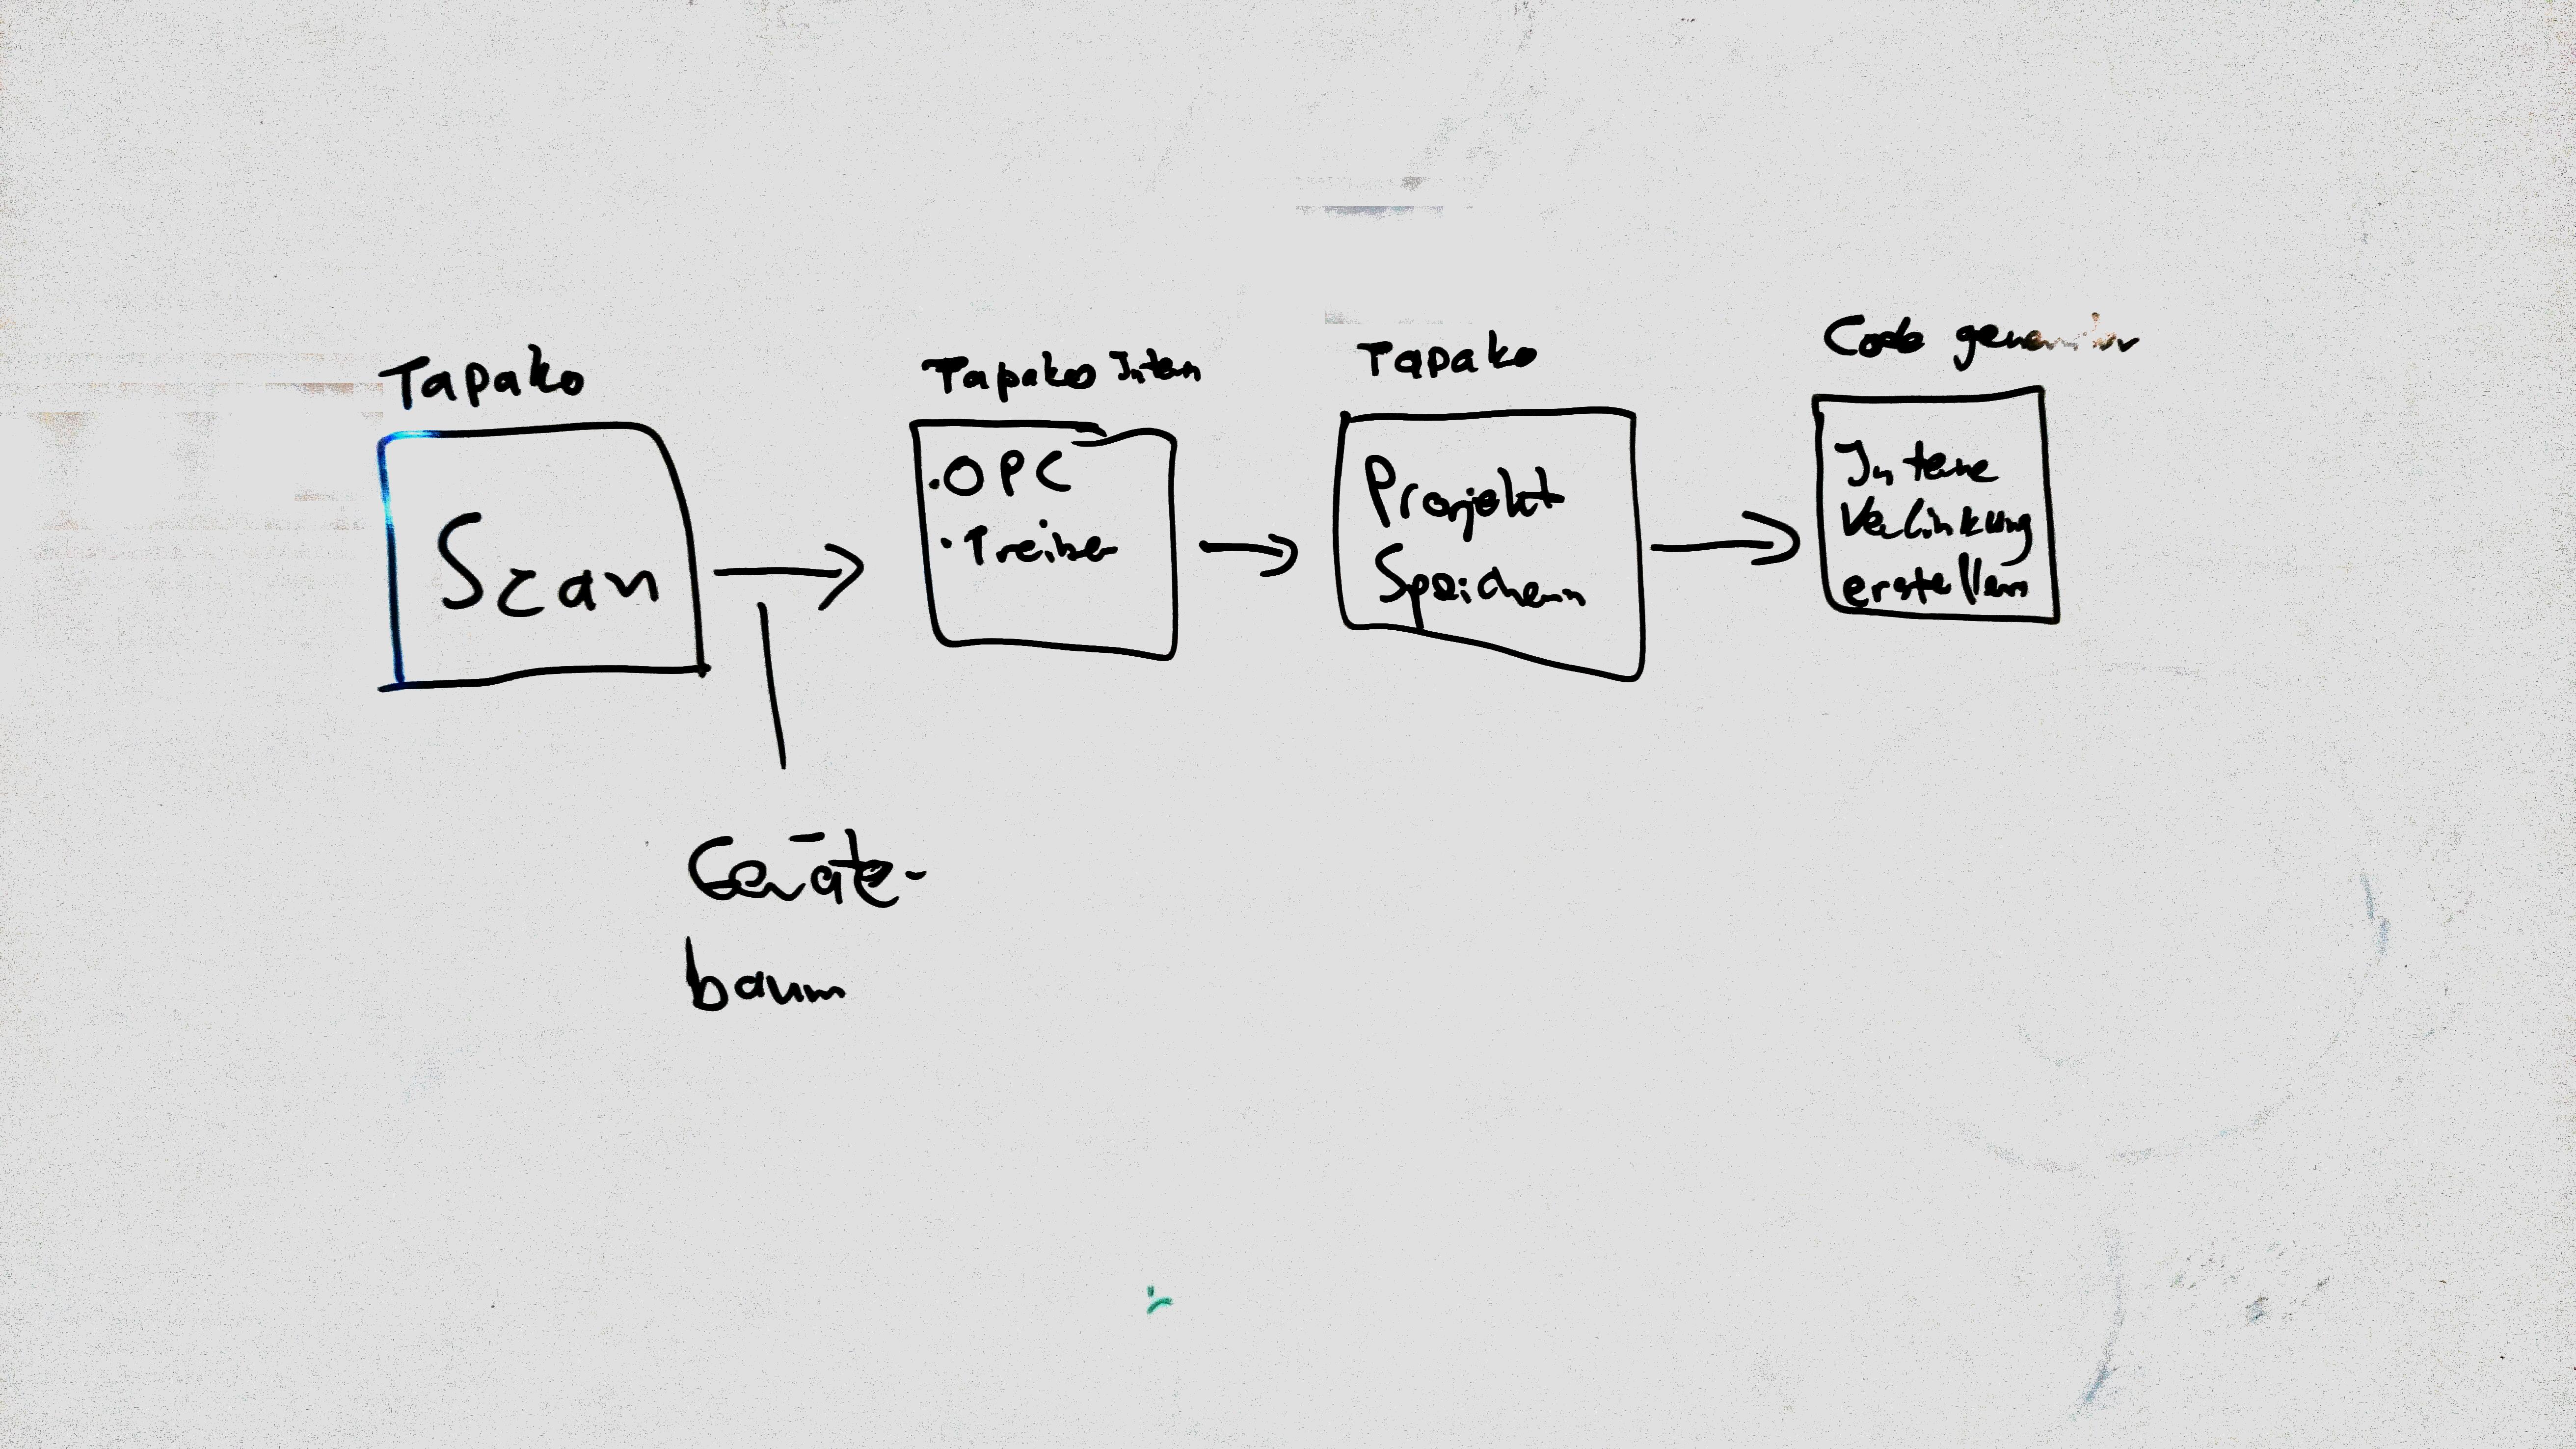 Tapako
Scan
Geräte-
baum
Tapako Intern
·OPC
·Treiber
Tapako
Projekt
Speichern
Code generator
Interne
Verlinkung
erstellen